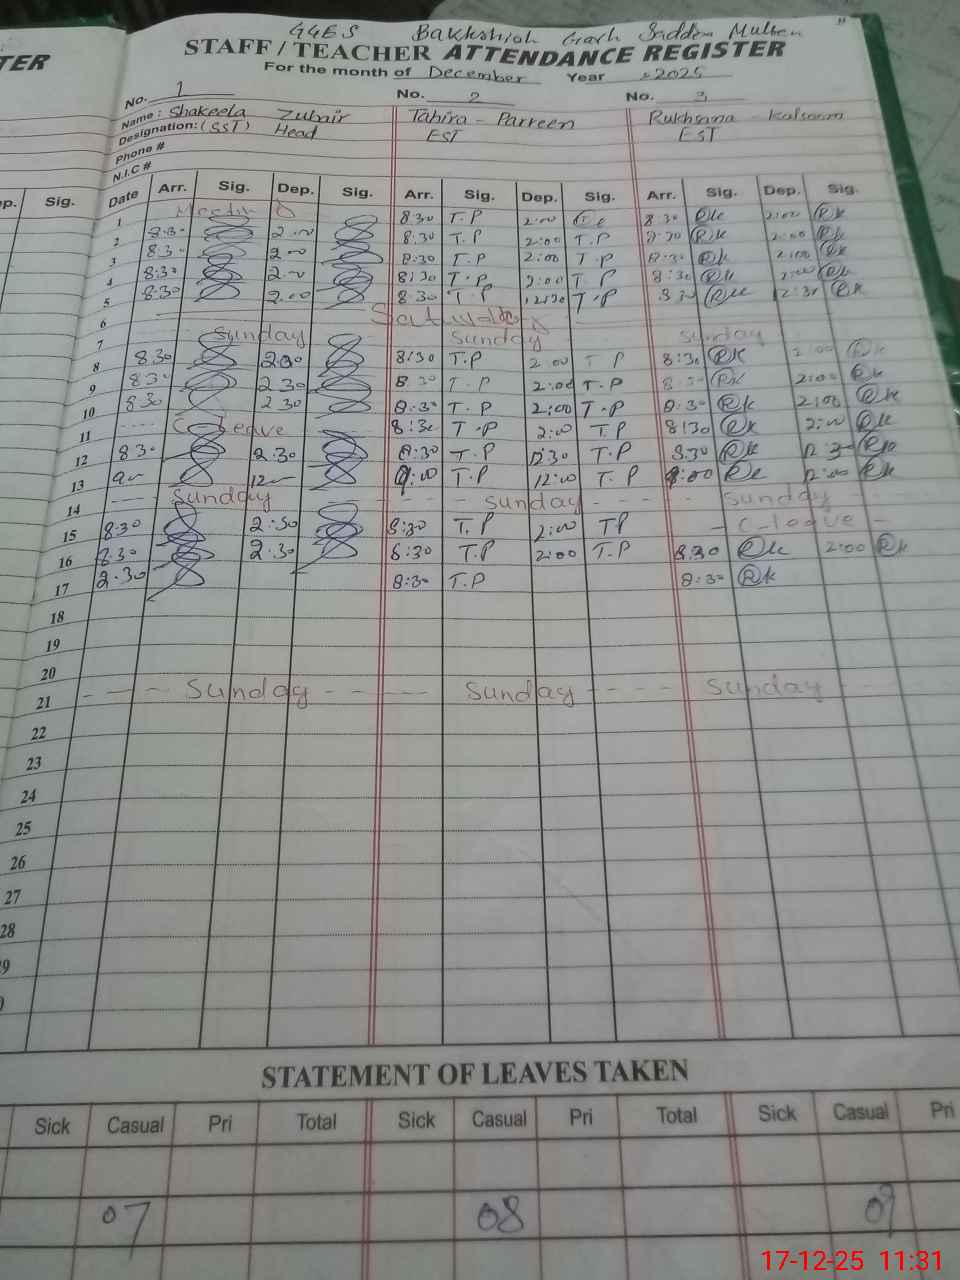 TER
GGES Bakhshish Garh Saddem Multen
STAFF / TEACHER ATTENDANCE REGISTER
For the month of December Year 2025
No. 1 No. 2 No. 3
Name: Shakeela Zubair Tahira - Parveen Rukhsana - Kalsoom
Designation: (SST) Head EST EST
Phone #
N.I.C #
ep. Sig. Date Arr. Sig. Dep. Sig. Arr. Sig. Dep. Sig. Arr. Sig. Dep. Sig.
1 8:30 T.P 2:00 8:30 Rk 2:00 Rk
2 8:30 2:00 8:30 T.P 2:00 T.P 8:30 Rk 2:00 Rk
3 8:30 2:00 8:30 T.P 2:00 T.P 8:30 Rk 2:00 Rk
4 8:30 2:00 8:30 T.P 2:00 T.P 8:30 Rk 2:00 Rk
5 8:30 2:00 8:30 T.P 12:30 T.P 8:30 Rk 12:30 Rk
6 Saturday
7 Sunday Sunday Sunday
8 8:30 2:30 8:30 T.P 2:00 T P 8:30 Rk 2:00 Rk
9 8:30 2:30 8:30 T.P 2:00 T.P 8:30 Rk 2:00 Rk
10 8:30 2:30 8:30 T.P 2:00 T.P 8:30 Rk 2:00 Rk
11 C leave 8:30 T.P 2:00 T.P 8:30 Rk 2:00 Rk
12 8:30 2:30 8:30 T.P 12:30 T.P 8:30 Rk 12:30
13 9:00 12:00 9:00 T.P 12:00 T.P 9:00 12:00 Rk
14 Sunday Sunday Sunday
15 8:30 2:30 8:30 T.P 2:00 TP C-leave
16 8:30 2:30 8:30 T.P 2:00 T.P 8:30 Rk 2:00 Rk
17 2:30 8:30 T.P 8:30 Rk
18
19
20
21 Sunday Sunday Sunday
22
23
24
25
26
27
28
9
STATEMENT OF LEAVES TAKEN
Sick Casual Pri Total Sick Casual Pri Total Sick Casual Pri
07 08 09
17-12-25 11:31